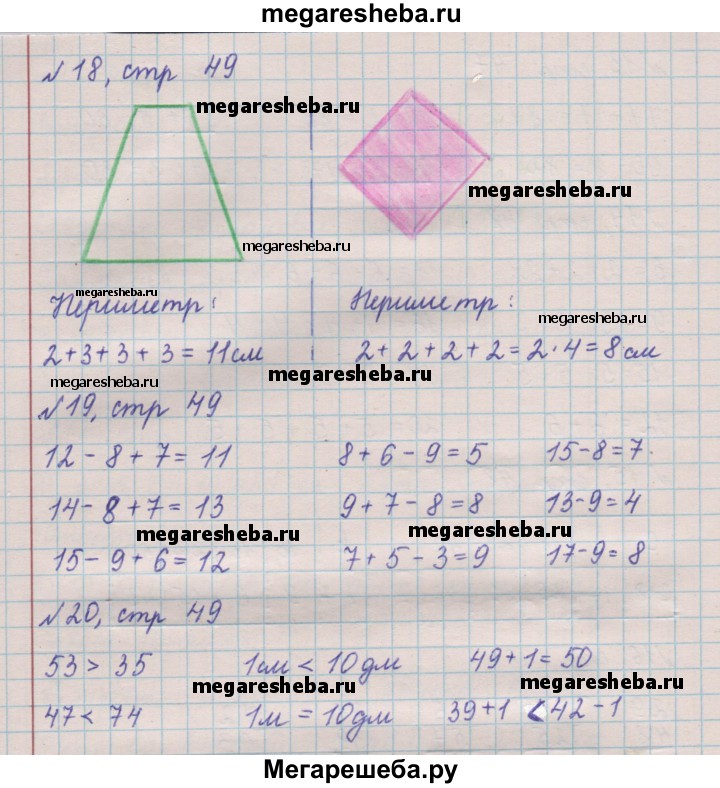 megaresheba.ru
№18, стр 49
megaresheba.ru
megaresheba.ru
megaresheba.ru
megaresheba.ru
Периметр:
Периметр:
megaresheba.ru
2+3+3+3=11см
2+2+2+2=2·4=8см
megaresheba.ru
megaresheba.ru
№19, стр 49
12-8+7=11 8+6-9=5 15-8=7
14-8+7=13 9+7-8=8 13-9=4
megaresheba.ru
megaresheba.ru
15-9+6=12 7+5-3=9 17-9=8
№20, стр 49
53>35 1см<10дм 49+1=50
megaresheba.ru
megaresheba.ru
47<74 1м=10дм 39+1<42-1
Мегарешеба.ру